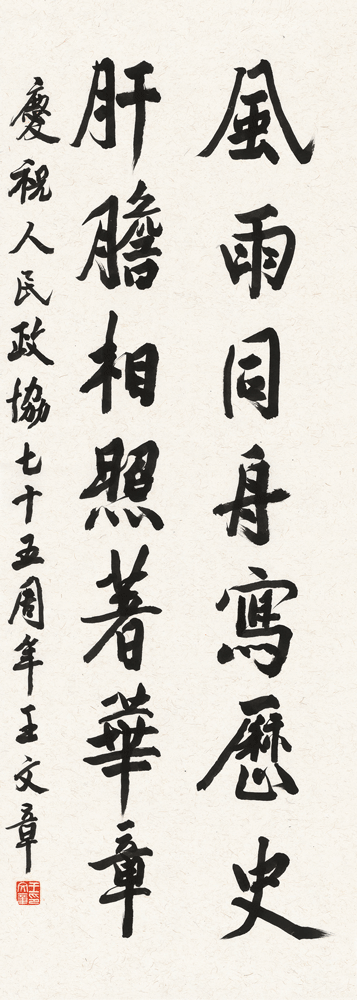 風雨同舟寫歷史
肝膽相照著華章
慶祝人民政協七十五周年王文章